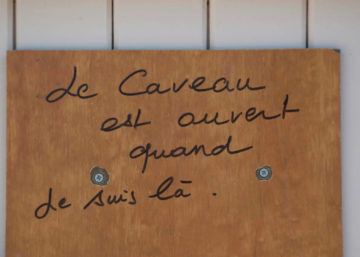 Le Caveau
est ouvert
quand
Je suis là .